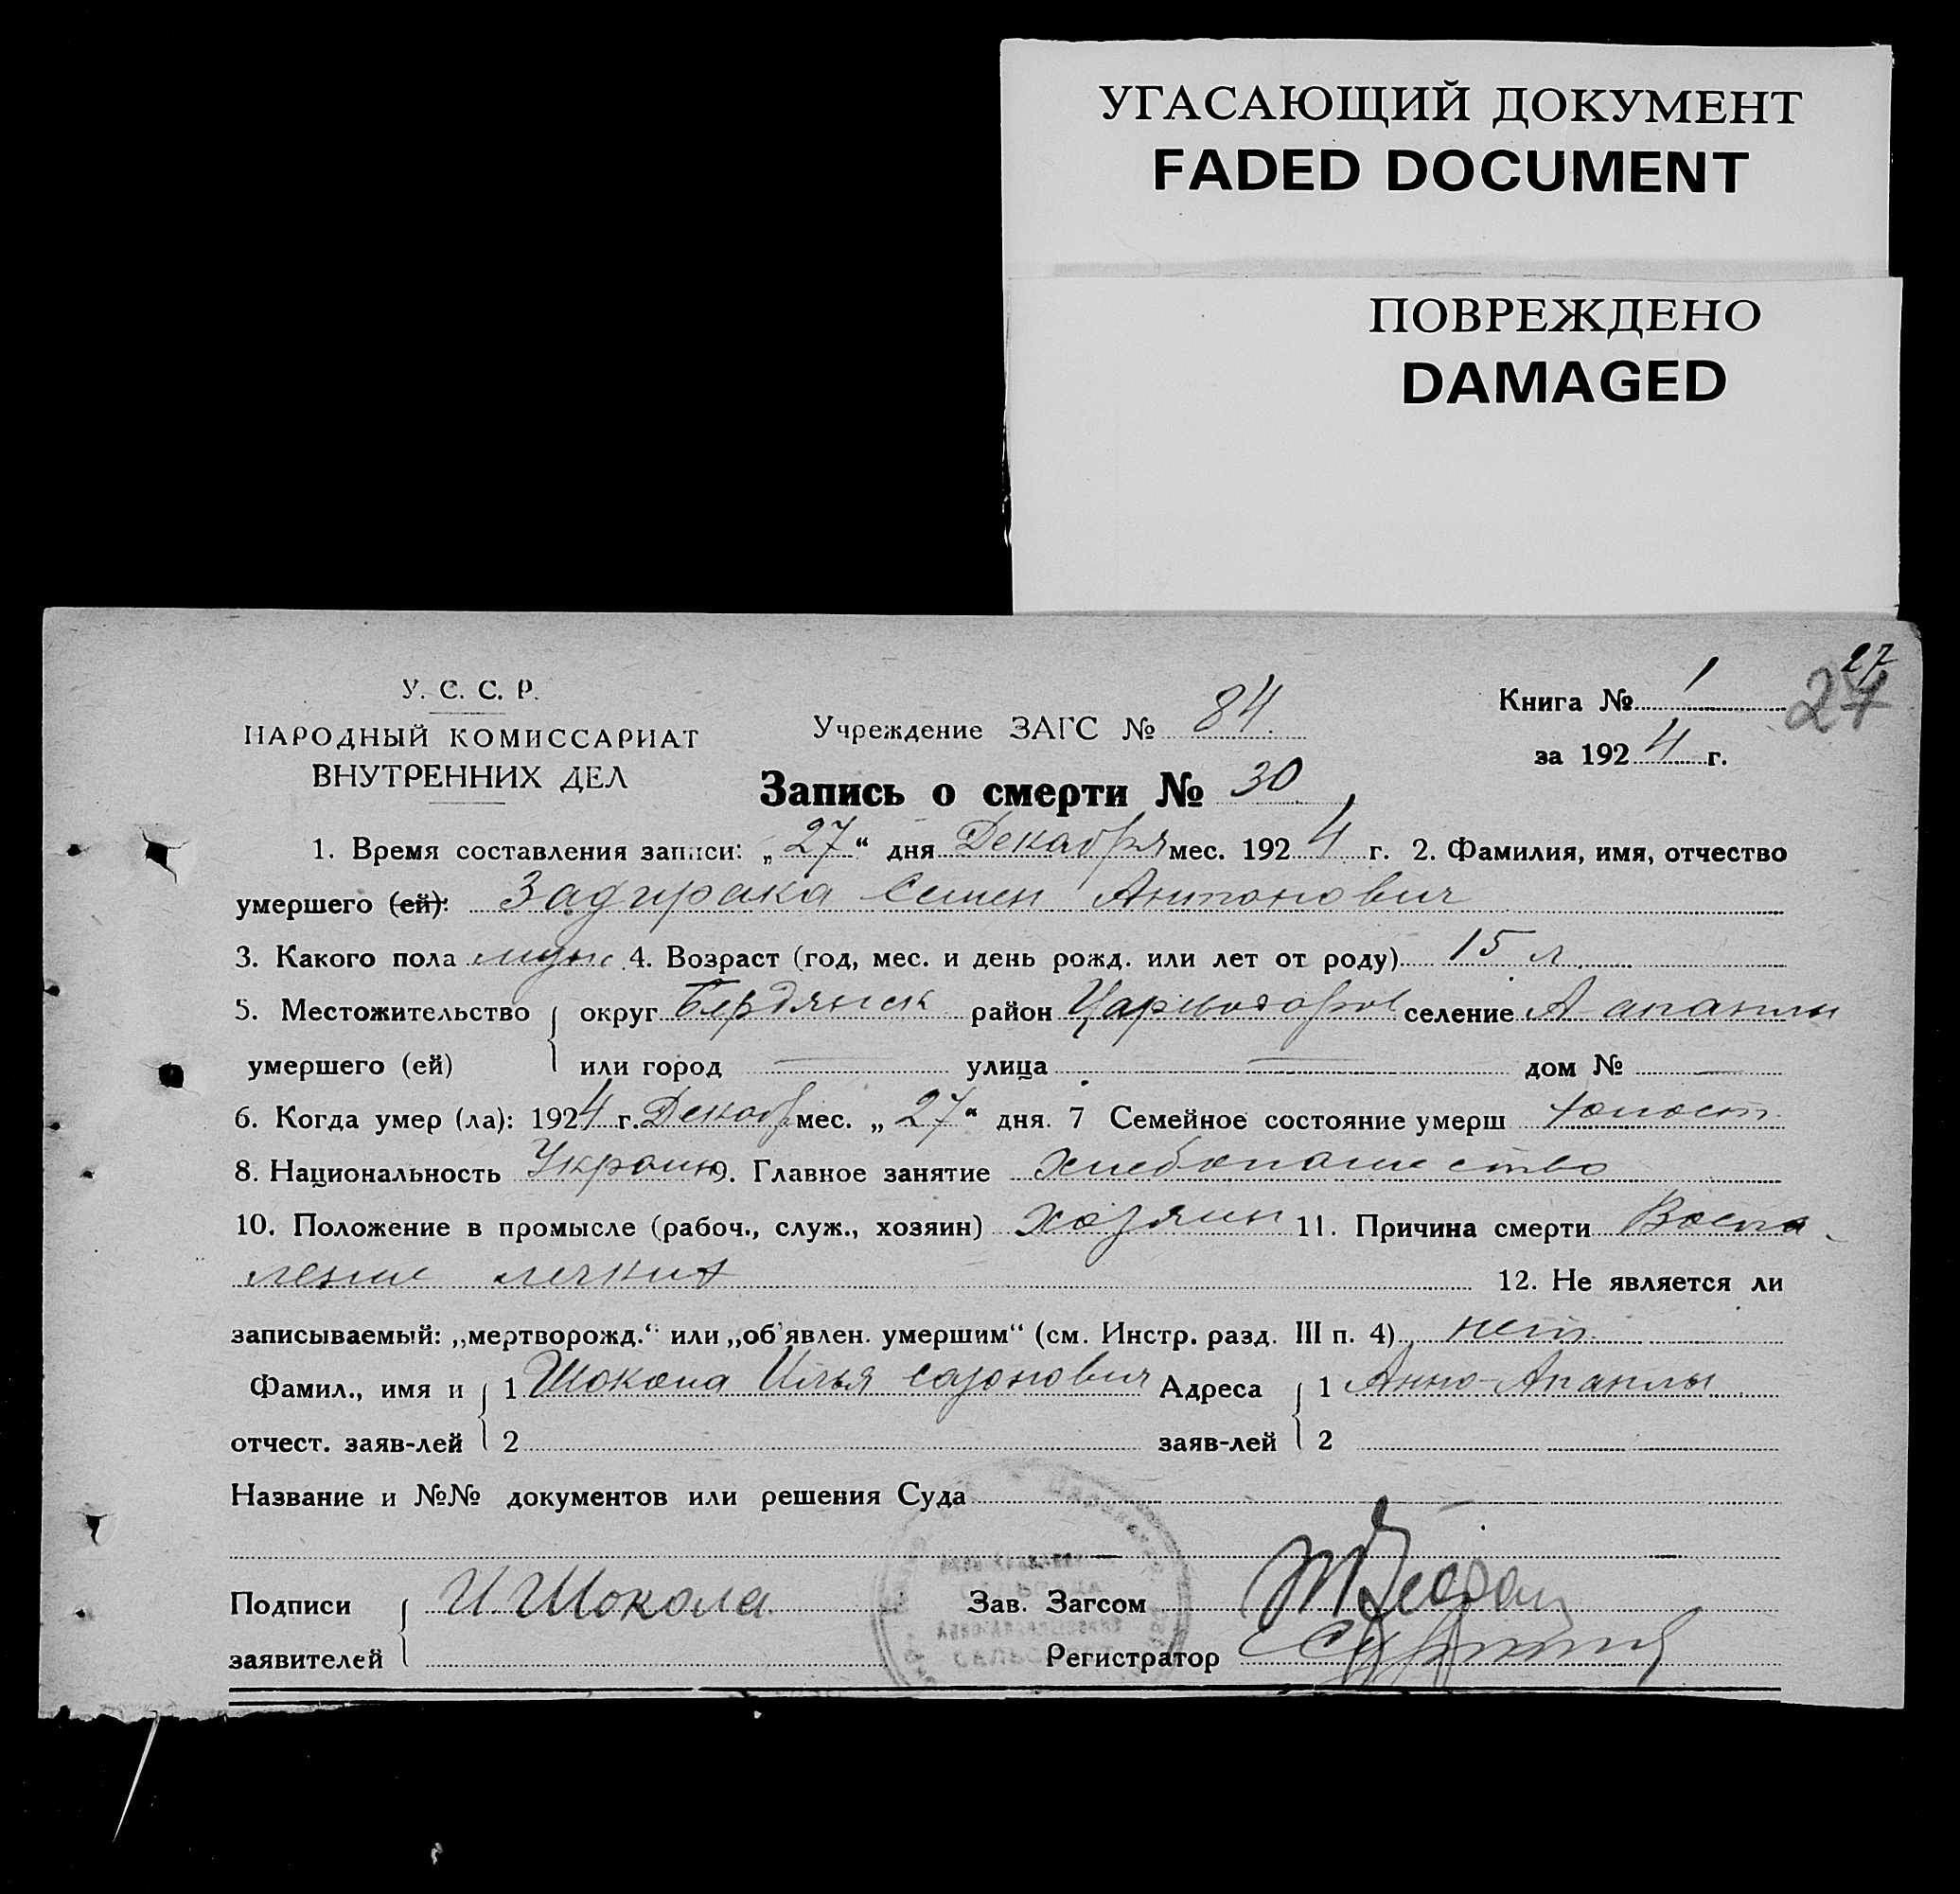 УГАСАЮЩИЙ ДОКУМЕНТ
FADED DOCUMENT
ПОВРЕЖДЕНО
DAMAGED
27
27
У. С. С. Р.
НАРОДНЫЙ КОМИССАРИАТ
ВНУТРЕННИХ ДЕЛ
Учреждение ЗАГС № 84.
Книга № 1
за 1924 г.
Запись о смерти № 30
1. Время составления записи: „27“ дня Декабря мес. 1924 г. 2. Фамилия, имя, отчество
умершего (ей): Задирака Семен Антонович
3. Какого пола муж. 4. Возраст (год, мес. и день рожд. или лет от роду) 15 л.
5. Местожительство округ Бердянск район селение А-апанлы
умершего (ей) или город — улица — дом № —
6. Когда умер (ла): 1924 г. Декабр мес. „27“ дня. 7 Семейное состояние умерш холост.
8. Национальность Украин 9. Главное занятие хлебопашество
10. Положение в промысле (рабоч., служ., хозяин) хозяин 11. Причина смерти Воспа-
ление легких 12. Не является ли
записываемый: „мертворожд.“ или „об'явлен. умершим“ (см. Инстр. разд. III п. 4) нет
Фамил., имя и 1 Шокола Илья сазонович Адреса 1 Анно-Апанлы
отчест. заяв-лей 2 заяв-лей 2
Название и №№ документов или решения Суда
Подписи И Шокола Зав. Загсом
заявителей Регистратор